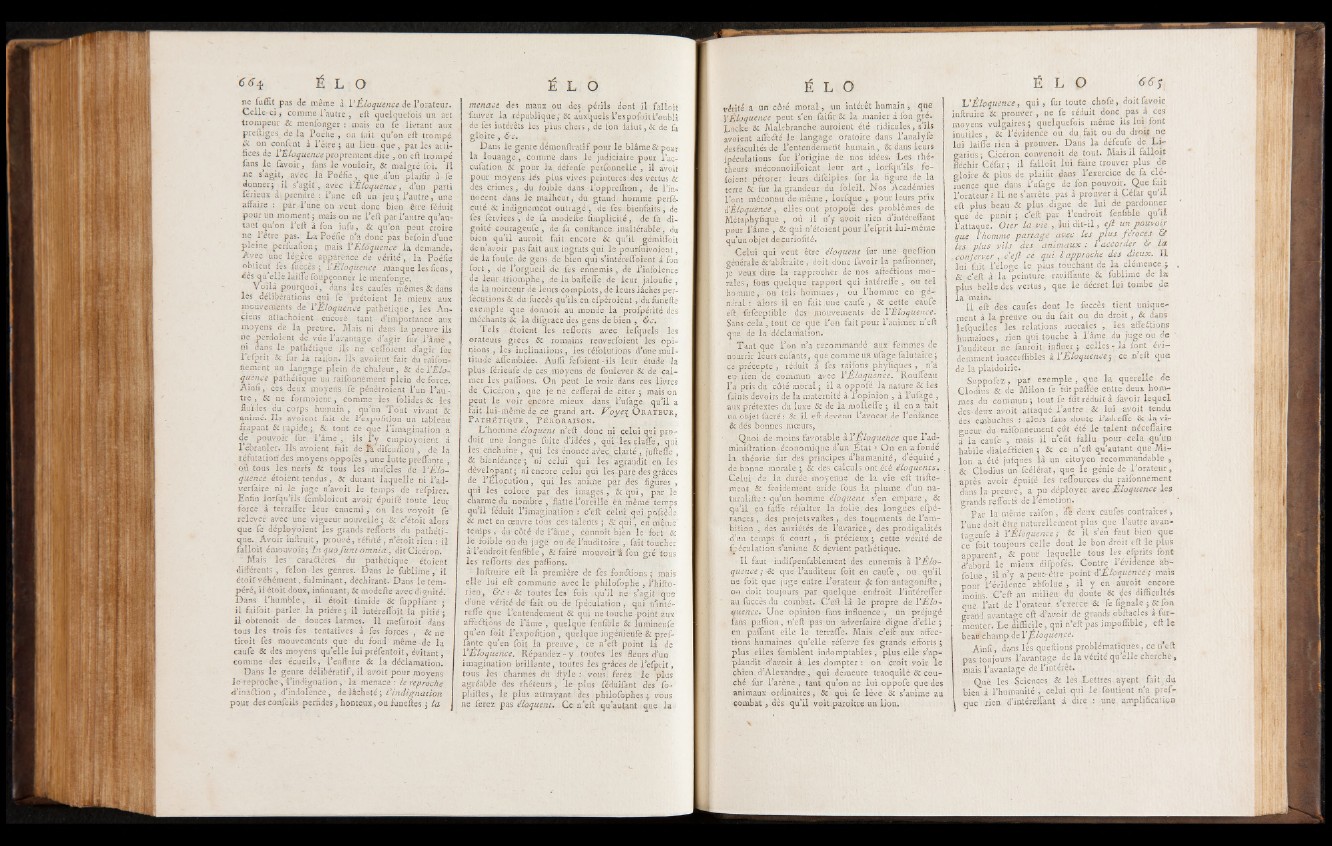 664 É L O
ne fuffit pas de même à l'Éloquence de l'orateur.
Celle-ci, comme l'autre, eft quelquefois un art
trompeur & menfonger : mais en fe livrant aux
preftiges de la Poéfie, on fait qu'on eft trompé
& on confent à l'être ; au lieu que, par les arti-
fices de l'Éloquence proprement dite, on eft trompé
fans le favoir, fans le vouloir, & malgré foi. Il
ne s'agit, avec la Poéfie, que d'un plaifir à fe
donner ; il s'agit, avec l'Éloquence, d'un parti
férieux à prendre : l'une eft un jeu ; l'autre, une
affaire : par l'une on veut donc bien être féduit
pour un moment ; mais on ne l'eft par l'autre qu'au-
tant qu'on l'eft à fon infu, & qu'on peut croire
ne l'être pas. La Poéfie n'a donc pas befoin d'une
pleine perfuafion ; mais l'Éloquence la demande.
Avec une légère apparence de vérité, la Poéfie
obtient fes fuccès ; l'Éloquence manque les fiens,
dès qu'elle laiffe foupçonner le menfonge.
Voilà pourquoi, dans les caufes mêmes & dans
les délibérations qui fe prêtoient le mieux aux
mouvements de l'Éloquence pathétique, les An-
ciens attachoient encore tant d'importance aux
moyens de la preuve. Mais ni dans la preuve ils
ne perdoient de vûe l'avantage d'agir fur l'âme,
ni dans le pathétique ils ne ceffoient d'agir fur
l'efprit & fur la raifon. Ils avoient fait du raifon-
nement un langage plein de chaleur, & de l'Élo-
quence pathétique un raifonnement plein de force.
Ainfi, ces deux moyens fe pénétroient l'un l'au-
tre, & ne formoient, comme les folides & les
fluides du corps humain, qu'un Tout vivant &
animé. Ils avoient fait de l'expofition un tableau
frapant & rapide ; & tout ce que l'imagination a
de pouvoir fur l'âme, ils l'y employoient à
l'ébranler. Ils avoient fait de la difcuffion, de la
réfutation des moyens oppofés, une lutte preffante,
où tous les nerfs & tous les mufcles de l'Élo-
quence étoient tendus, & durant laquelle ni l'ad-
verfaire ni le juge n'avoit le temps de refpirer.
Enfin lorfqu'ils fembloient avoir épuifé toute leur
force à terraffer leur ennemi, on les voyoit fe
relever avec une vigueur nouvelle ; & c'étoit alors
que fe déployoient les grands refforts du pathéti-
que. Avoir inftruit, prouvé, réfuté, n'étoit rien : il
falloit émouvoir ; In quo funt omnia, dit Cicéron.
Mais les caractères du pathétique étoient
différents, felon les genres. Dans le fublime, il
étoit véhément, fulminant, déchirant. Dans le tem-
péré, il étoit doux, infinuant, & modefte avec dignité.
Dans l'humble, il étoit timide & fuppliant ;
il faifoit parler la prière ; il intéreffoit la pitié ;
il obtenoit de douces larmes. Il mefuroit dans
tous les trois fes tentatives à fes forces, & ne
tiroit fes mouvements que du fond même de la
caufe & des moyens qu'elle lui préfentoit, évitant,
comme des écueils, l'enflure & la déclamation.
Dans le genre délibératif, il avoit pour moyens
le reproche, l'indignation, la menace : le reproche
d'inaction, d'indolence, de lâcheté ; l'indignation
pour des confeils perfides, honteux, ou funeftes ; la
É L O
menace des maux ou des périls dont il falloit
fauver la république, & auxquels l'expofoit l'oubli
de fes intérêts les plus chers, de fon falut, & de fa
gloire, &c.
Dans le genre démonftratif pour le blâme & pour
la louange, comme dans le judiciaire pour l'ac-
cufation & pour la défenfe perfonnelle, il avoit
pour moyens les plus vives peintures des vertus &
des crimes, du foible dans l'oppreffion, de l'in-
nocent dans le malheur, du grand homme perfé-
cuté & indignement outragé, de fes bienfaits, de
fes fervices, de fa modefte fimplicité, de fa di-
gnité courageufe, de fa conftance inaltérable, du
bien qu'il auroit fait encore & qu'il gémiffoit
de n'avoir pas fait aux ingrats qui le pourfuivoient,
de la foule de gens de bien qui s'intéreffoient à fon
fort, de l'orgueil de fes ennemis, de l'infolence
de leur triomphe, de la baffeffe de leur jaloufie,
de la noirceur de leurs complots, de leurs lâches per-
fécutions & du fuccès qu'ils en efpéroient, du funefte
exemple que donnoit au monde la profpérité des
méchants & la difgrace des gens de bien, &c.
Tels étoient les refforts avec lefquels les
orateurs grecs & romains renverfoient les opi-
nions, les inclinations, les réfolutions d'une mul-
titude affemblée. Auffi faifoient-ils leur étude la
plus férieufe de ces moyens de foulever & de cal-
mer les paffions. On peut le voir dans ces livres
de Cicéron, que je ne cefferai de citer ; mais on
peut le voir encore mieux dans l'ufage qu'il a
fait lui-même de ce grand art. Voyez ORATEUR,
PATHÉTIQUE, PÉRORAISON.
L'homme éloquent n'eft donc ni celui qui pro-
duit une longue fuite d'idées, qui les claffe, qui
les enchaîne, qui les énonce avec clarté, jufteffe,
& bienféance ; ni celui qui les agrandit en les
dévelopant ; ni encore celui qui les pare des grâces
de l'Élocution, qui les anime par des figures,
qui les colore par des images, & qui, par le
charme du nombre, flatte l'oreille en même temps
qu'il féduit l'imagination : c'eft celui qui poffède
& met en œuvre tous ces talents ; & qui, en même
temps, du côté de l'âme, connoît bien le fort &
le foible ou du juge ou de l'auditoire, fait toucher
à l'endroit fenfible, & faire mouvoir à fon gré tous
les refforts des paffions.
Inftruire eft la première de fes fonctions ; mais
elle lui eft commune avec le philofophe, l'hifto-
rien, &c. & toutes les fois qu'il ne s'agit que
d'une vérité de fait ou de fpéculation, qui n'inté-
reffe que l'entendement & qui ne touche point aux
affections de l'âme, quelque fenfible & lumineufe
qu'en foit l'expofition, quelque ingénieufe & pref-
fante qu'en foit la preuve, ce n'eft point là de
l'Éloquence. Répandez-y toutes les fleurs d'un
imagination brillante, toutes les grâces de l'efprit,
tous les charmes du ftyle : vous ferez le plus
agréable des rhéteurs, le plus féduifant des fo-
phiftes, le plus attrayant des philofophes ; vous
ne ferez pas éloquent. Ce n'eft qu'autant que la
É L O
vérité a un côté moral, un intérêt humain, que
l'Éloquence peut s'en faifir & la manier à fon gré.
Locke & Malebranche auroient été ridicules, s'ils
avoient affecté le langage oratoire dans l'analyfe
des facultés de l'entendement humain, & dans leurs
fpéculations fur l'origine de nos idées. Les rhé-
theurs méconnoiffoient leur art, lorfqu'ils fe-
foient pérorer leurs difciples fur la figure de la
terre & fur la grandeur du foleil. Nos Académies
l'ont méconnu de même, lorfque, pour leurs prix
d'Éloquence, elles ont propofé des problêmes de
Métaphyfique, où il n'y avoit rien d'intéreffant
pour l'âme, & qui n'étoient pour l'efprit lui-même
qu'un objet de curiofité.
Celui qui veut être éloquent fur une queftion
générale & abftraite, doit donc favoir la paffionner,
je veux dire la rapprocher de nos affections mo-
rales, fous quelque rapport qui intéreffe, ou tel
homme, ou tels hommes, ou l'homme en gé-
néral : alors il en fait une caufe, & cette caufe
eft fufceptible des mouvements de l'Éloquence.
Sans cela, tout ce que l'on fait pour l'animer n'eft
que de la déclamation.
Tant que l'on n'a recommandé aux femmes de
nourrir leurs enfants, que comme un ufage falutaire ;
ce précepte, réduit à fes raifons phyfiques, n'a
eu rien de commun avec l'Éloquence. Rouffeau
l'a pris du côté moral ; il a oppofé la nature & les
faints devoirs de la maternité à l'opinion, à l'ufage,
aux prétextes du luxe & de la molleffe ; il en a fait
un objet facré : & il eft devenu l'avocat de l'enfance
& des bonnes mœurs.
Quoi de moins favorable à l'Éloquence que l'ad-
miniftration économique d'un État ? On en a fondé
la théorie fur des principes d'humanité, d'équité,
de bonne morale ; & des calculs ont été éloquents.
Celui de la durée moyenne de la vie eft trifte-
ment & froidement aride fous la plume d'un na-
turalifte : qu'un homme éloquent s'en empare, &
qu'il en faffe réfulter la folie des longues efpé-
rances, des projets vaftes, des tourments de l'am-
bition, des anxiétés de l'avarice, des prodigalités
d'un temps fi court, fi précieux ; cette vérité de
fpéculation s'anime & devient pathétique.
Il faut indifpenfablement des ennemis à l'Élo-
quence ; & que l'auditeur foit en caufe, ou qu'il
ne foit que juge entre l'orateur & fon antagonifte,
on doit toujours par quelque endroit l'intéreffer
au fuccès du combat. C'eft là le propre de l'Élo-
quence. Une opinion fans influence, un préjugé
fans paffion, n'eft pas un adverfaire digne d'elle ;
en paffant elle le terraffe. Mais c'eft aux affec-
tions humaines qu'elle réferve fes grands efforts ;
plus elles femblent indomptables, plus elle s'ap-
plaudit d'avoir à les dompter : on croit voir le
chien d'Alexandre, qui demeure tranquile & cou-
ché fur l'arène, tant qu'on ne lui oppofe que des
animaux ordinaires, & qui fe lève & s'anime au
combat, dès qu'il voit paroître un lion.
É L O 665
L'Éloquence, qui, fur toute chofe, doit favoir
inftruire & prouver, ne fe réduit donc pas à ces
moyens vulgaires ; quelquefois même ils lui font
inutiles, & l'évidence ou du fait ou du droit ne
lui laiffe rien à prouver. Dans la défenfe de Li-
garius, Cicéron convenoit de tout. Mais il falloit
fléchir Céfar ; il falloit lui faire trouver plus de
gloire & plus de plaifir dans l'exercice de fa clé-
mence que dans l'ufage de fon pouvoir. Que fait
l'orateur ? Il ne s'arrête pas à prouver à Céfar qu'il
eft plus beau & plus digne de lui de pardonner
que de punir ; c'eft par l'endroit fenfible qu'il
l'attaque. Oter la vie, lui dit-il, eft un pouvoir
que l'homme partage avec les plus féroces &
les plus vils des animaux : l'accorder & la
conferver, c'eft ce qui l'approche des dieux. Il
lui fait l'éloge le plus touchant de la clémence ;
& c'eft à la peinture raviffante & fublime de la
plus belle des vertus, que le décret lui tombe de
la main.
Il eft des caufes dont le fuccès tient unique-
ment à la preuve ou du fait ou du droit, & dans
lefquelles les relations morales, les affections
humaines, rien qui touche à l'âme du juge ou de
l'auditeur ne fauroit influer ; celles-là font évi-
demment inacceffibles à l'Éloquence ; ce n'eft que
de la plaidoirie.
Suppofez, par exemple, que la querelle de
Clodius & de Milon fe fût paffée entre deux hom-
mes du commun ; tout fe fût réduit à favoir lequel
des deux avoit attaqué l'autre & lui avoit tendu
des embûches : alors fans doute l'adreffe & la vi-
gueur du raifonnement eût été le talent néceffaire
à la caufe, mais il n'eût fallu pour cela qu'un
habile dialecticien ; & ce n'eft qu'autant que Mi-
lon a été jufques là un citoyen recommandable,
& Clodius un fcélérat, que le génie de l'orateur,
après avoir épuifé les reffources du raifonnement
dans la preuve, a pu déployer avec Éloquence les
grands refforts de l'émotion.
Par la même raifon, de deux caufes contraires,
l'une doit être naturellement plus que l'autre avan-
tageufe à l'Éloquence ; & il s'en faut bien que
ce foit toujours celle dont le bon droit eft le plus
apparent, & pour laquelle tous les efprits font
d'abord le mieux difpofés. Contre l'évidence ab-
folue, il n'y a peut-être point d'Éloquence ; mais
pour l'évidence abfolue, il y en auroit encore
moins. C'eft au milieu du doute & des difficultés
que l'art de l'orateur s'exerce & fe fignale ; & fon
grand avantage eft d'avoir de grands obftacles à fur-
monter. Le difficile, qui n'eft pas impoffible, eft le
beau champ de l'Éloquence.
Ainfi, dans les queftions problématiques, ce n'eft
pas toujours l'avantage de la vérité qu'elle cherche,
mais l'avantage de l'intérêt.
Que les Sciences & les Lettres ayent fait du
bien à l'humanité, celui qui le foutient n'a pref-
que rien d'intéreffant à dire : une amplification